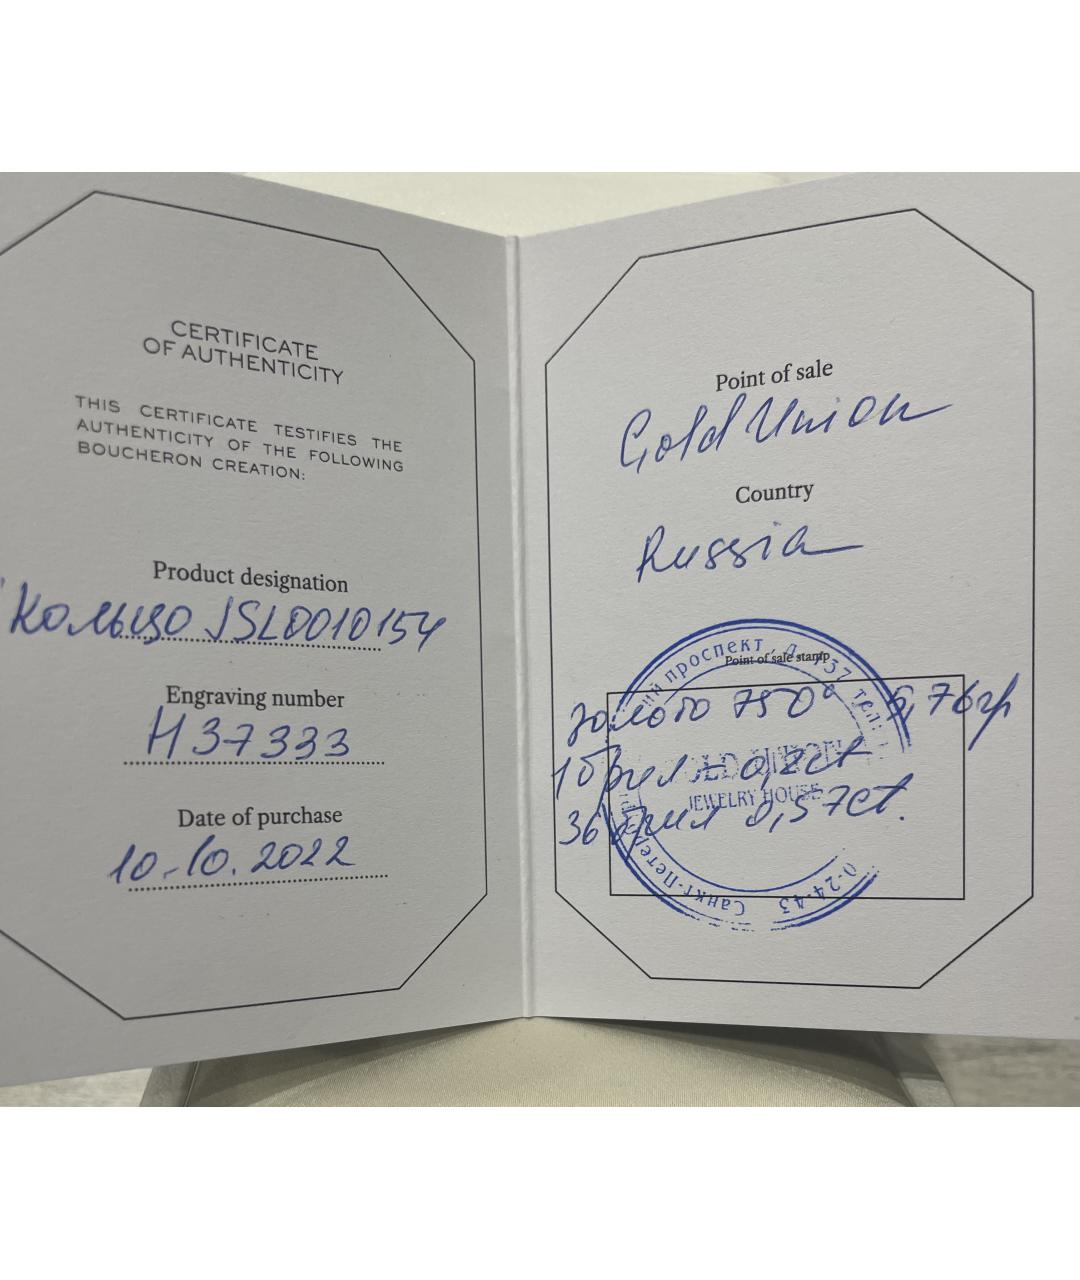 CERTIFICATE
OF AUTHENTICITY
THIS CERTIFICATE TESTIFIES THE
AUTHENTICITY OF THE FOLLOWING
BOUCHERON CREATION:
Product designation
Кольцо JSL0010154
Engraving number
H37333
Date of purchase
10.10.2022
Point of sale
Gold Union
Country
Russia
Point of sale stamp
проспект, д. 137 тел:
золото 750° 5,76гр
1брил - 0,2ct
JEWELRY HOUSE
36 брил 0,57ct.
Санкт-Петер
0-24-43